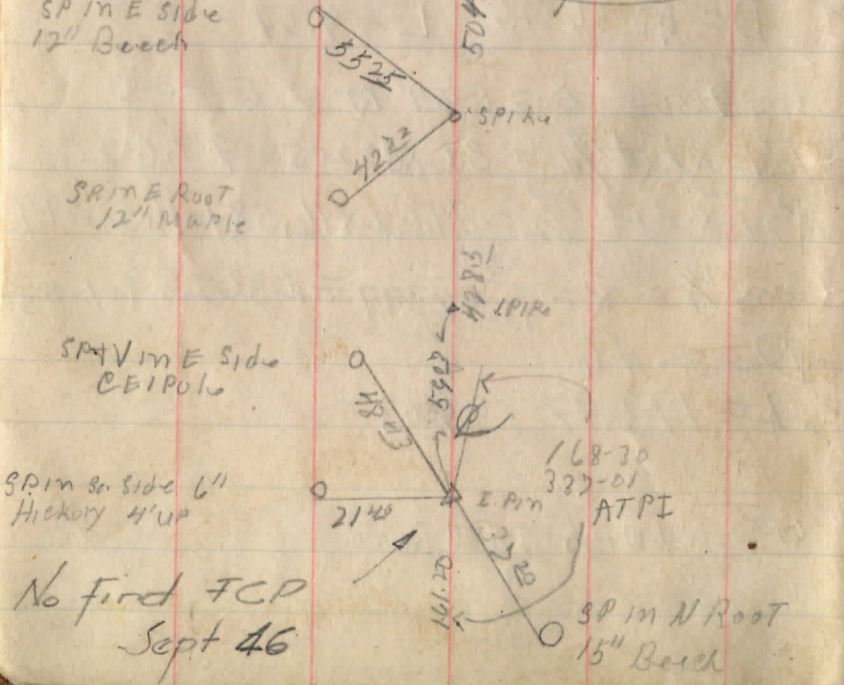 SP in E Side
12" Beech
5525
504
SPike
4222
SP in E Root
12" Maple
I.Pipe
SP+V in E Side
CEI Pole
168-30
337-01
AT PI
SP in So. Side 6"
Hickory 4' up
2140
I. Pin
3720
161.20
No Find FCP
Sept 46
SP in N Root
15" Beech